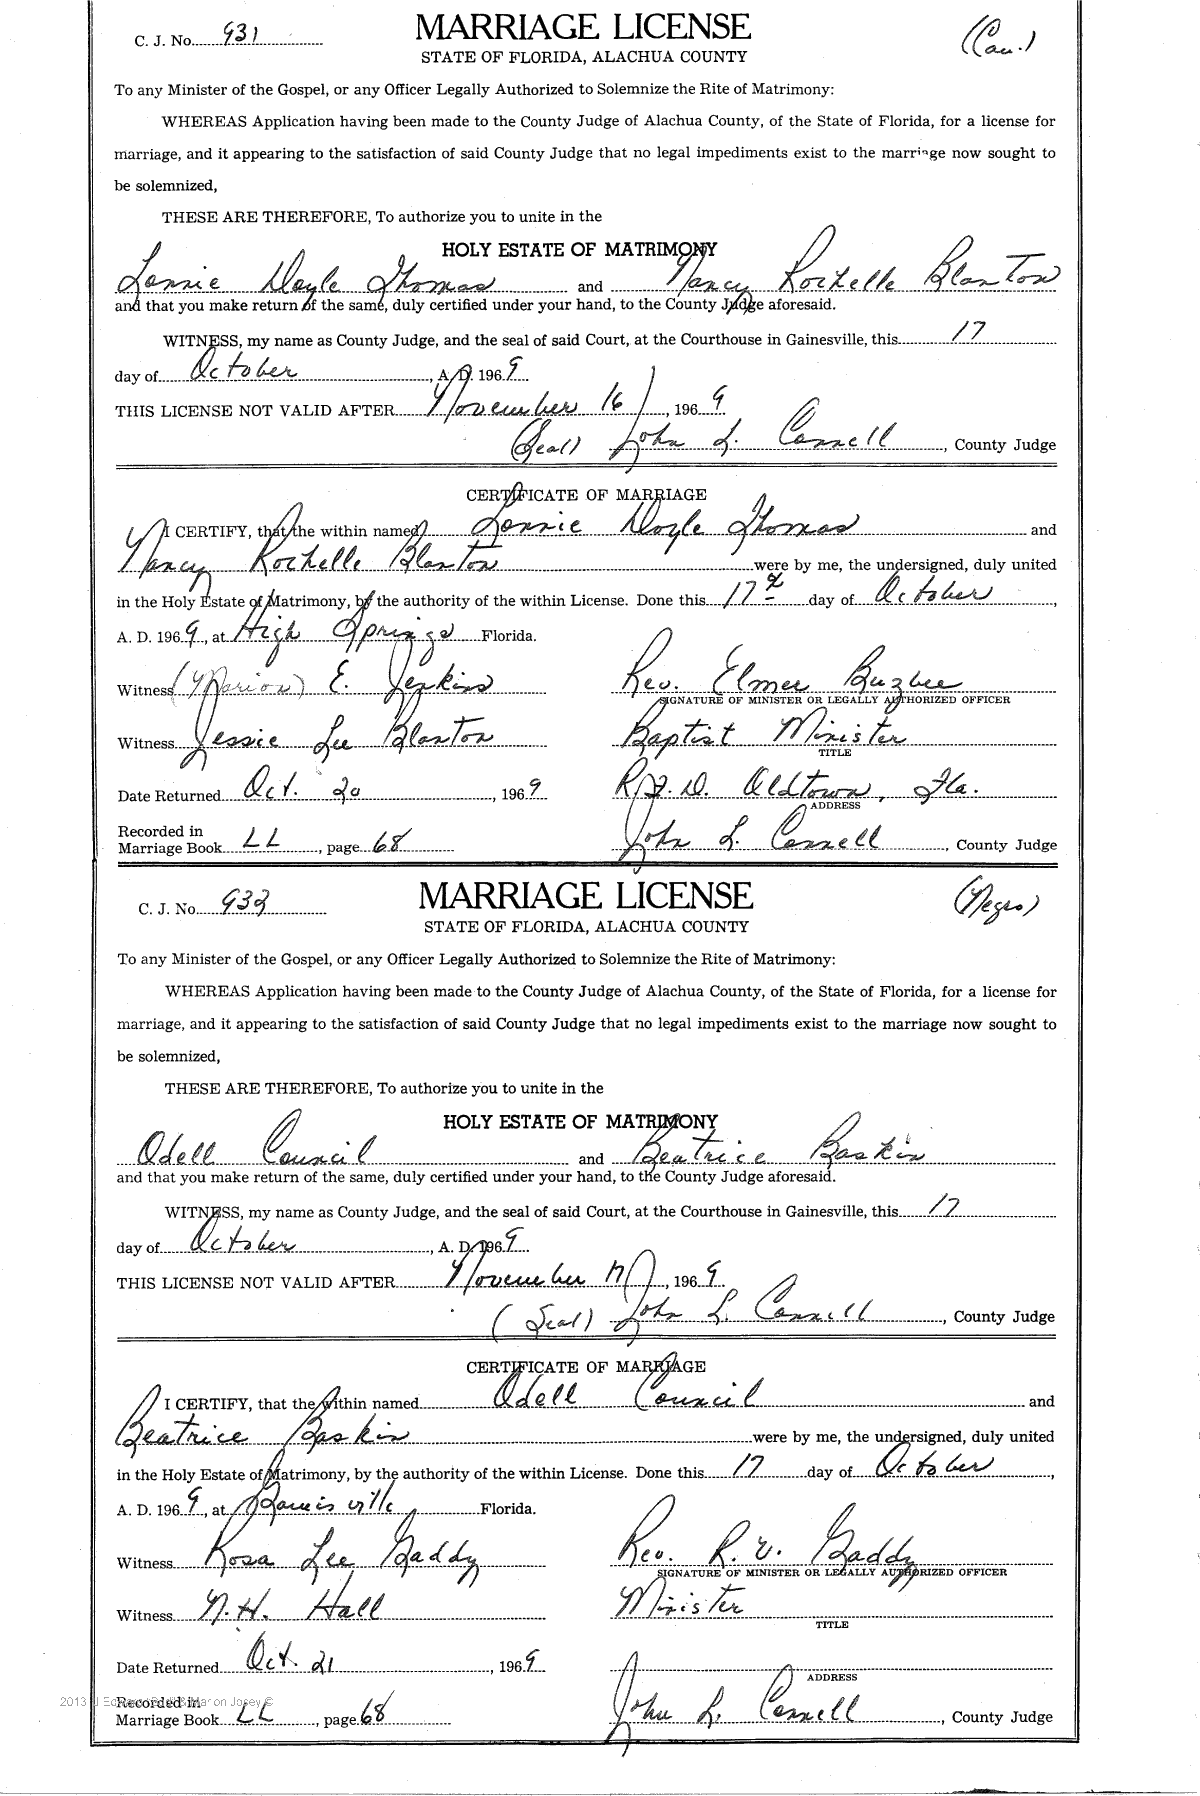 C. J. No. 931 MARRIAGE LICENSE (Cau.)
STATE OF FLORIDA, ALACHUA COUNTY
To any Minister of the Gospel, or any Officer Legally Authorized to Solemnize the Rite of Matrimony:
WHEREAS Application having been made to the County Judge of Alachua County, of the State of Florida, for a license for
marriage, and it appearing to the satisfaction of said County Judge that no legal impediments exist to the marriage now sought to
be solemnized,
THESE ARE THEREFORE, To authorize you to unite in the
HOLY ESTATE OF MATRIMONY
Lonnie Doyle Thomas and Nancy Rochelle Blanton
and that you make return of the same, duly certified under your hand, to the County Judge aforesaid.
WITNESS, my name as County Judge, and the seal of said Court, at the Courthouse in Gainesville, this 17
day of October, A. D. 1969
THIS LICENSE NOT VALID AFTER November 16, 1969
(Seal) John L. Connell, County Judge
CERTIFICATE OF MARRIAGE
I CERTIFY, that the within named Lonnie Doyle Thomas and
Nancy Rochelle Blanton were by me, the undersigned, duly united
in the Holy Estate of Matrimony, by the authority of the within License. Done this 17 day of October,
A. D. 1969, at High Springs Florida.
Witness (Marion) E. Jenkins Rev. Elmer Buzbee
SIGNATURE OF MINISTER OR LEGALLY AUTHORIZED OFFICER
Witness Jessie Lee Blanton Baptist Minister
TITLE
Date Returned Oct. 20, 1969 R.F.D. Oldtown, Fla.
ADDRESS
Recorded in
Marriage Book LL, page 68 John L. Connell, County Judge
C. J. No. 932 MARRIAGE LICENSE (Negro)
STATE OF FLORIDA, ALACHUA COUNTY
To any Minister of the Gospel, or any Officer Legally Authorized to Solemnize the Rite of Matrimony:
WHEREAS Application having been made to the County Judge of Alachua County, of the State of Florida, for a license for
marriage, and it appearing to the satisfaction of said County Judge that no legal impediments exist to the marriage now sought to
be solemnized,
THESE ARE THEREFORE, To authorize you to unite in the
HOLY ESTATE OF MATRIMONY
Odell Council and Beatrice Baskin
and that you make return of the same, duly certified under your hand, to the County Judge aforesaid.
WITNESS, my name as County Judge, and the seal of said Court, at the Courthouse in Gainesville, this 17
day of October, A. D. 1969
THIS LICENSE NOT VALID AFTER November 17, 1969
(Seal) John L. Connell, County Judge
CERTIFICATE OF MARRIAGE
I CERTIFY, that the within named Odell Council and
Beatrice Baskin were by me, the undersigned, duly united
in the Holy Estate of Matrimony, by the authority of the within License. Done this 17 day of October,
A. D. 1969, at Florida.
Witness Rosa Lee Gaddy Rev. R. V. Gaddy
SIGNATURE OF MINISTER OR LEGALLY AUTHORIZED OFFICER
Witness N. H. Hall Minister
TITLE
Date Returned Oct. 21, 1969
ADDRESS
Recorded in
Marriage Book LL, page 68 John L. Connell, County Judge